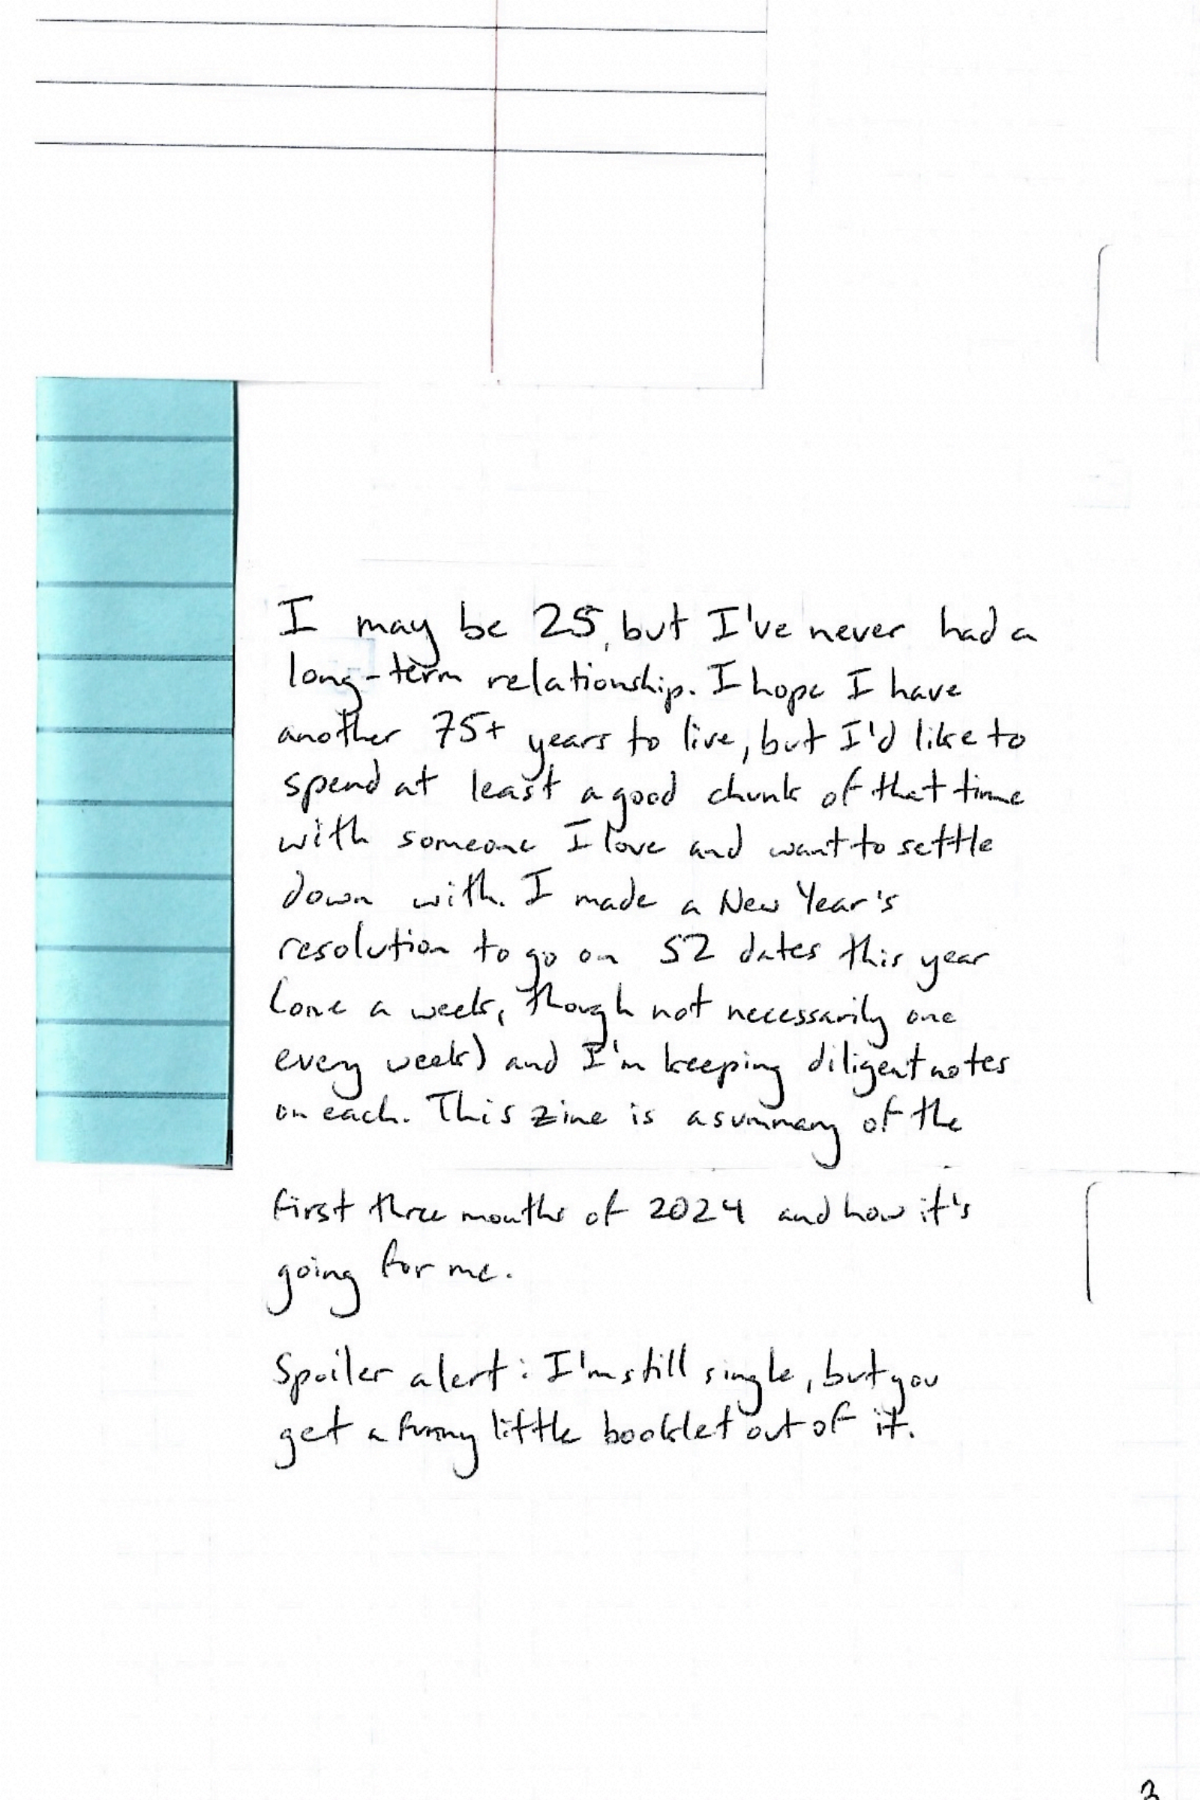 I may be 25, but I've never had a
long-term relationship. I hope I have
another 75+ years to live, but I'd like to
spend at least a good chunk of that time
with someone I love and want to settle
down with. I made a New Year's
resolution to go on 52 dates this year
(one a week, though not necessarily one
every week) and I'm keeping diligent notes
on each. This zine is a summary of the
first three months of 2024 and how it's
going for me.
Spoiler alert: I'm still single, but you
get a funny little booklet out of it.
3